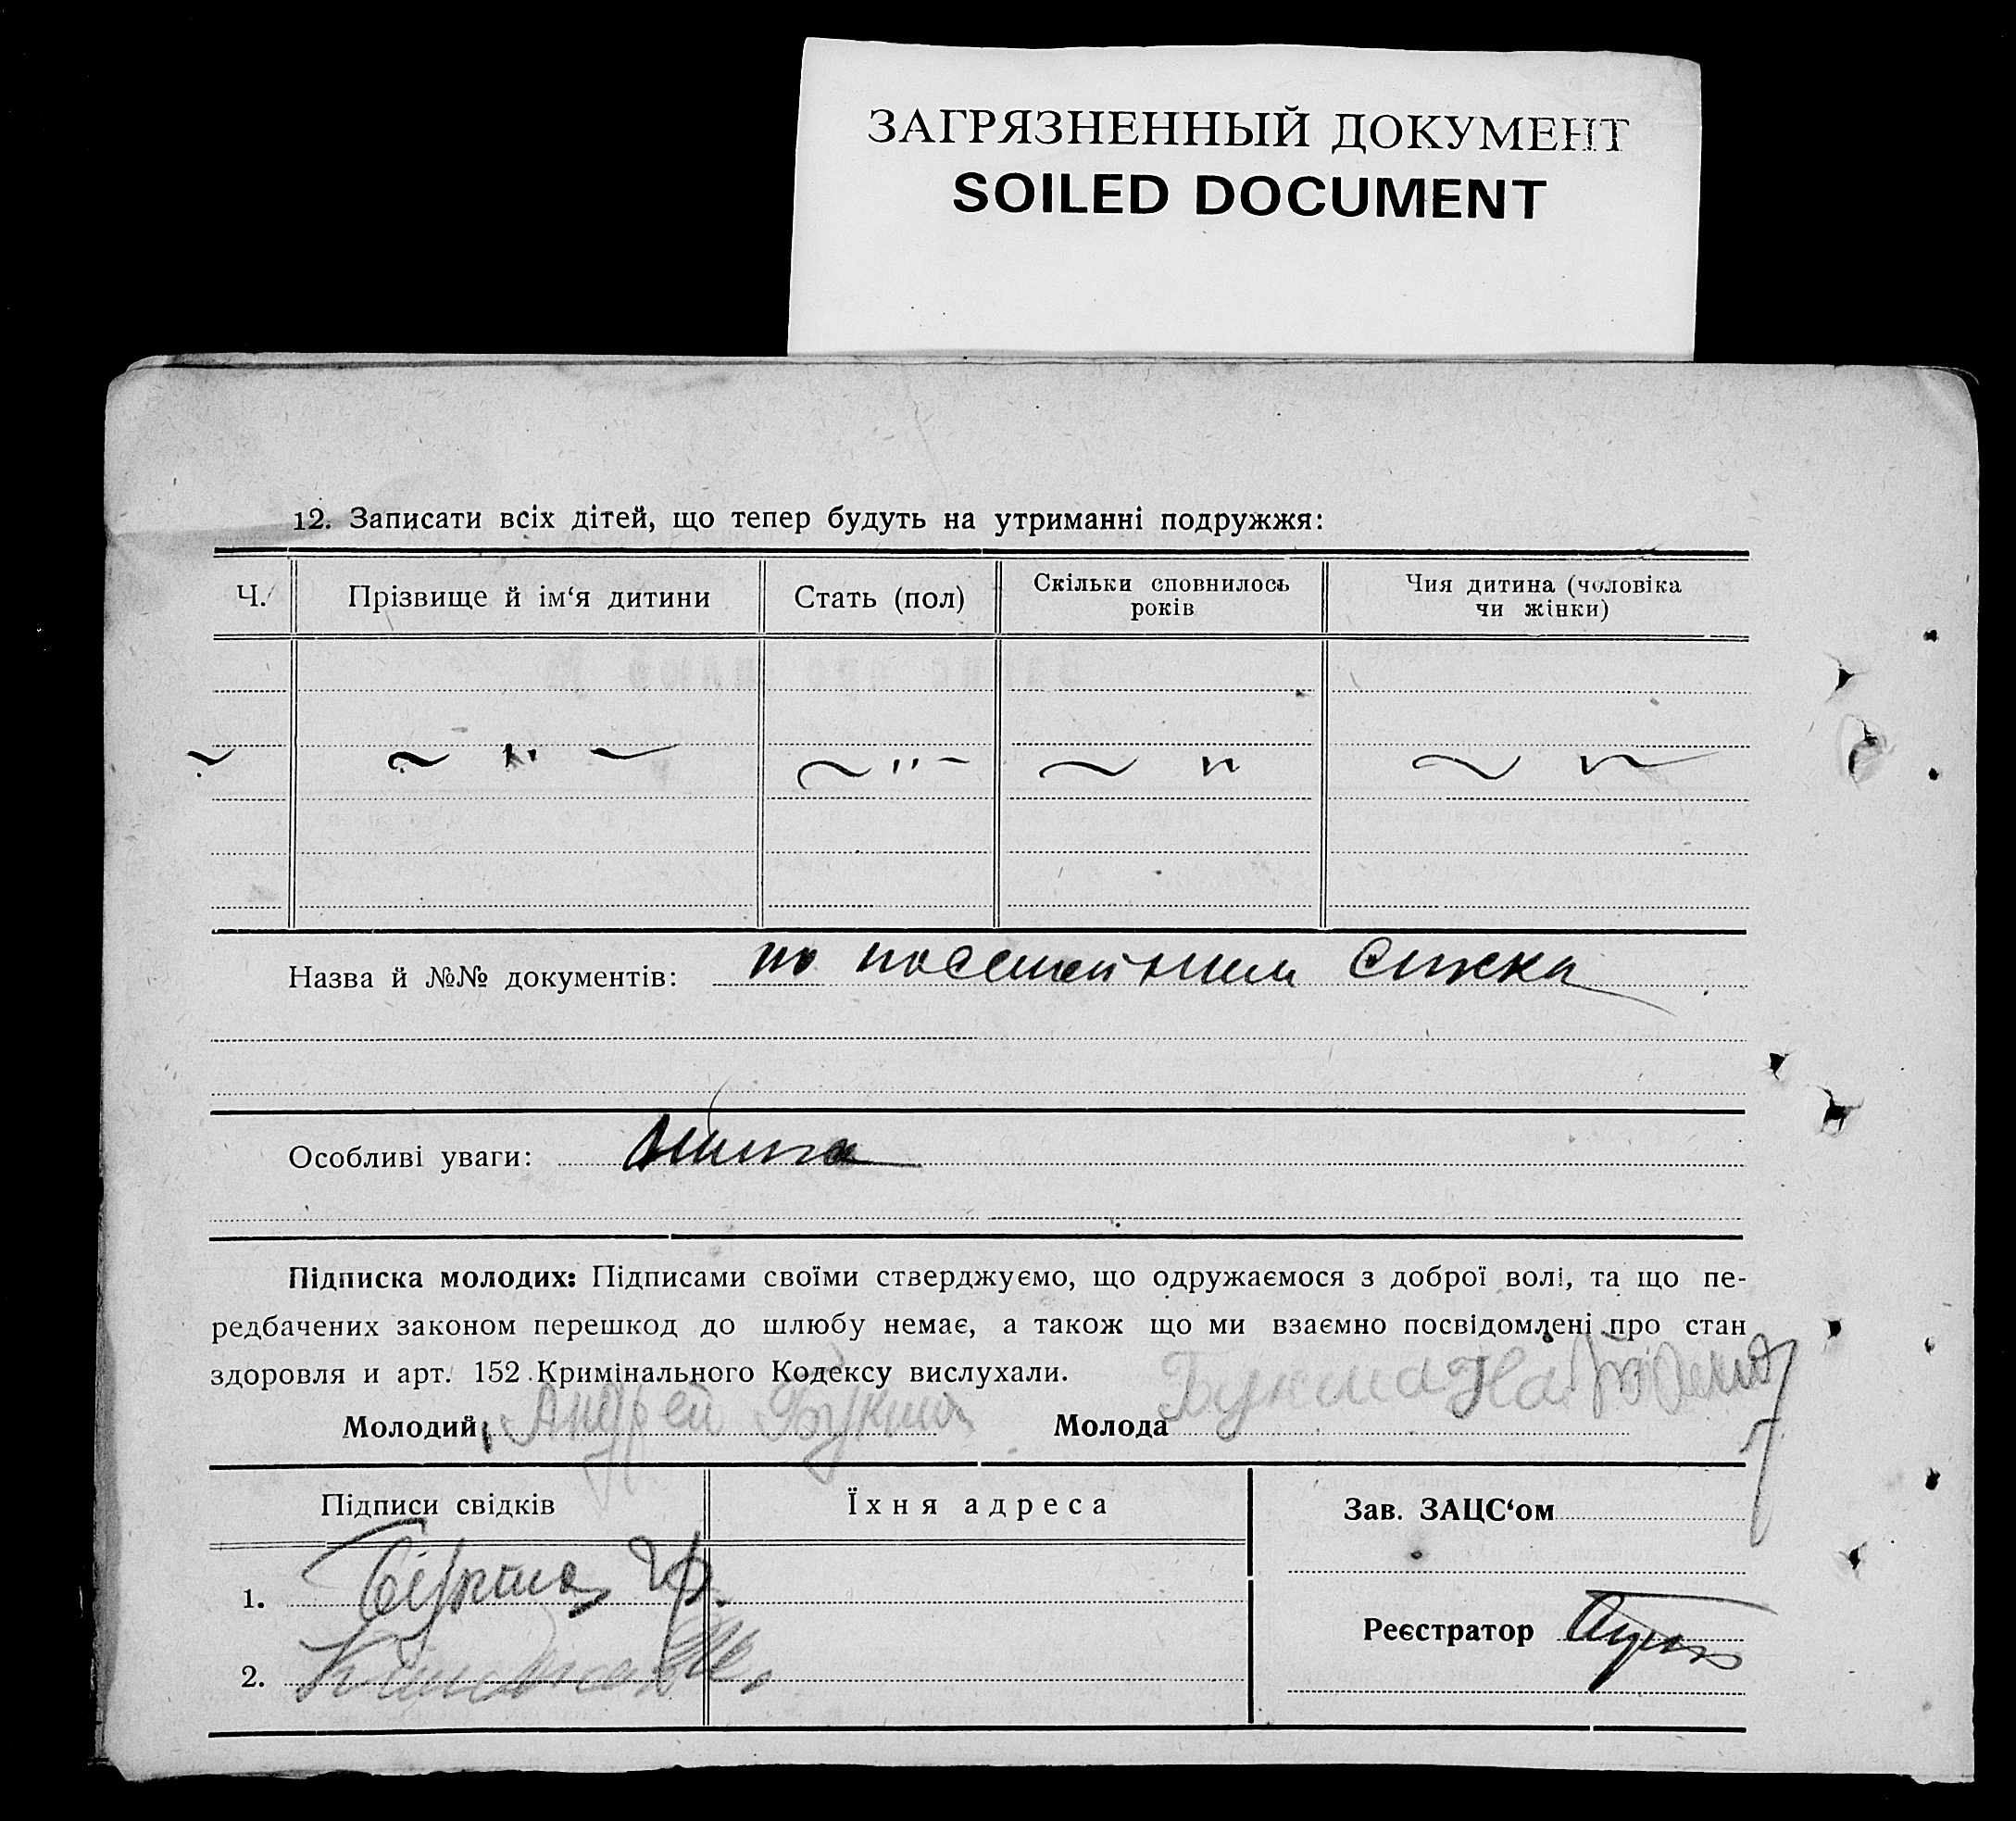 ЗАГРЯЗНЕННЫЙ ДОКУМЕНТ
SOILED DOCUMENT
12. Записати всіх дітей, що тепер будуть на утриманні подружжя:
Ч. Прізвище й ім‘я дитини Стать (пол) Скільки сповнилось років Чия дитина (чоловіка чи жінки)
Назва й №№ документів: по
Особливі уваги:
Підписка молодих: Підписами своїми стверджуємо, що одружаємося з доброї волі, та що пе-
редбачених законом перешкод до шлюбу немає, а також що ми взаємно посвідомлені про стан
здоровля и арт. 152 Кримінального Кодексу вислухали.
Молодий Андрей Букша Молода
Підписи свідків Їхня адреса Зав. ЗАЦС‘ом
1.
Реєстратор
2.